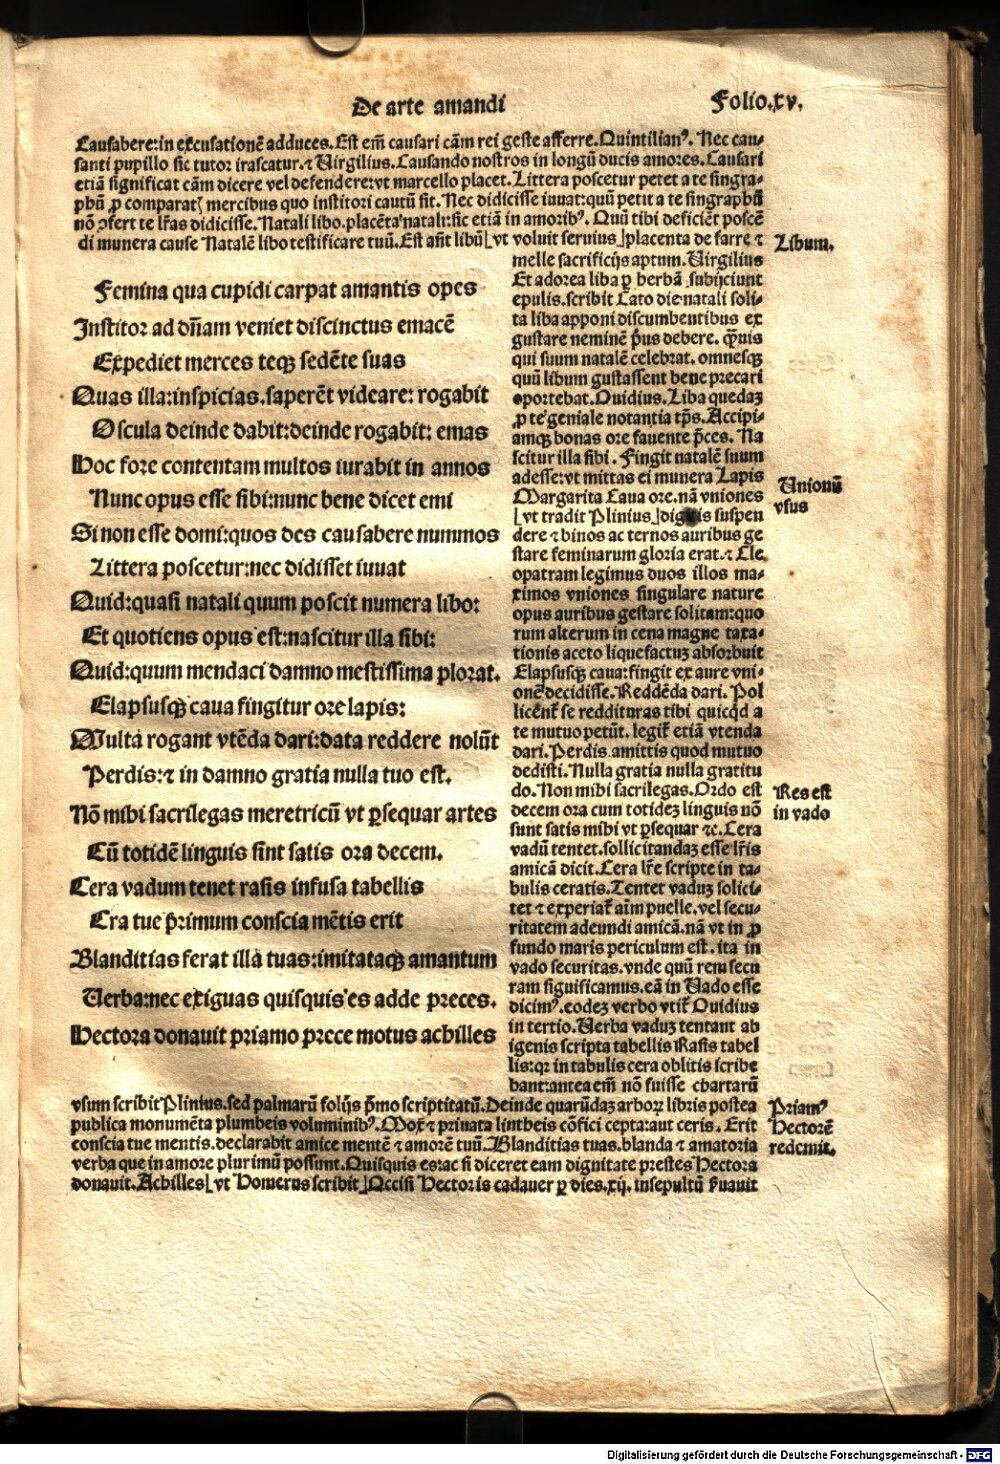 De arte amandi
Folio.xv.
Causabere:in excusationē adduces. Est em̄ causari cām rei geste afferre. Quintilianꝰ. Nec cau-
santi pupillo sic tutor irascatur.⁊ Virgilius. Causando nostros in longū ducis amores. Causari
etiā significat cām dicere vel defendere:vt marcello placet. Littera poscetur petet a te singra-
phū ꝓ comparatꝭ mercibus quo institori cautū sit. Nec didicisse iuuat:quū petit a te singraphū
nō ꝓfert te lr̄as didicisse. Natali libo. placēta natali:sic etiā in amoribꝰ. Quū tibi deficiēt poscē
di munera cause Natalē libo testificare tuū. Est aūt libū ⌊vt voluit seruius⌋ placenta de farre ⁊
Libum.
melle sacrificijs aptum. Virgilius
Et adorea liba ꝑ herbā subijciunt
epulis. scribit Cato die natali soli-
ta liba apponi discumbentibus ex
gustare neminē pͥus debere. qͣuis
qui suum natalē celebrat. omnesqꝫ
quū libum gustassent bene precari
oportebat. Ouidius. Liba quedaꝫ
ꝓ te geniale notantia tp̄s. Accipi-
amqꝫ bonas ore fauente p̄ces. Na
scitur illa sibi. Fingit natalē suum
adesse:vt mittas ei munera Lapis
Margarita Caua ore. nā vniones
⌊vt tradit Plinius⌋ digitis suspen
dere ⁊ binos ac ternos auribus ge
stare feminarum gloria erat.⁊ Cle
opatram legimus duos illos ma-
ximos vniones singulare nature
opus auribus gestare solitam:quo
rum alterum in cena magne taxa-
tionis aceto liquefactuꝫ absorbuit
Elapsusqꝫ caua:fingit ex aure vni-
onē decidisse. Reddēda dari. Pol
licent̄ se reddituras tibi quicqd a
te mutuo petūt. legit̄ etiā vtenda
dari. Perdis. amittis quod mutuo
dedisti. Nulla gratia nulla gratitu
do. Non mihi sacrilegas. Ordo est
decem ora cum totideꝫ linguis nō
sunt satis mihi vt ꝑsequar ⁊c. Cera
vadū tentet. sollicitandaꝫ esse lr̄is
amicā dicit. Cera lr̄e scripte in ta-
bulis ceratis. Tentet vaduꝫ solici-
tet ⁊ experiat̄ aīm puelle. vel secu-
ritatem adeundi amicā. nā vt in ꝓ
fundo maris periculum est. ita in
vado securitas. vnde quū rem secu
ram significamus. eā in Vado esse
dicimꝰ. eodeꝫ verbo vtit̄ Ouidius
in tertio. Verba vaduꝫ tentant ab
igenis scripta tabellis Rasis tabel
lis:qꝛ in tabulis cera oblitis scribe
bant:antea em̄ nō fuisse chartarū
Unionū
vsus
Res est
in vado
Femina qua cupidi carpat amantis opes
Institor ad dn̄am veniet discinctus emacē
Expediet merces teqꝫ sedēte suas
Quas illa:inspicias. saperēt videare: rogabit
Oscula deinde dabit:deinde rogabit: emas
Hoc fore contentam multos iurabit in annos
Nunc opus esse sibi:nunc bene dicet emi
Si non esse domi:quos des causabere nummos
Littera poscetur:nec didisset iuuat
Quid:quasi natali quum poscit numera libo:
Et quotiens opus est:nascitur illa sibi:
Quid:quum mendaci damno mestissima plorat.
Elapsusqꝫ caua fingitur ore lapis:
Multa rogant vtēda dari:data reddere nolūt
Perdis:⁊ in damno gratia nulla tuo est.
Nō mihi sacrilegas meretricū vt ꝑsequar artes
Cū totidē linguis sint satis ora decem.
Cera vadum tenet rasis infusa tabellis
Cra tue pͥrimum conscia mētis erit
Blanditias ferat illa tuas:imitataqꝫ amantum
Verba:nec exiguas quisquis es adde preces.
Hectora donauit priamo prece motus achilles
vsum scribit Plinius. sed palmarū folijs pͥmo scriptitatū. Deinde quarūdaꝫ arboꝝ libris postea
publica monumēta plumbeis voluminibꝰ. Mox ⁊ priuata lintheis cōfici cepta:aut ceris. Erit
conscia tue mentis. declarabit amice mentē ⁊ amorē tuū. Blanditias tuas. blanda ⁊ amatoria
verba que in amore plurimū possunt. Quisquis es:ac si diceret eam dignitate prestes Hectora
donauit. Achilles ⌊vt Homerus scribit⌋ Occisi Hectoris cadauer ꝑ dies. xij. insepultū ẜuauit
Priamꝰ
Hectorē
redemit.
Digitalisierung gefördert durch die Deutsche Forschungsgemeinschaft - DFG